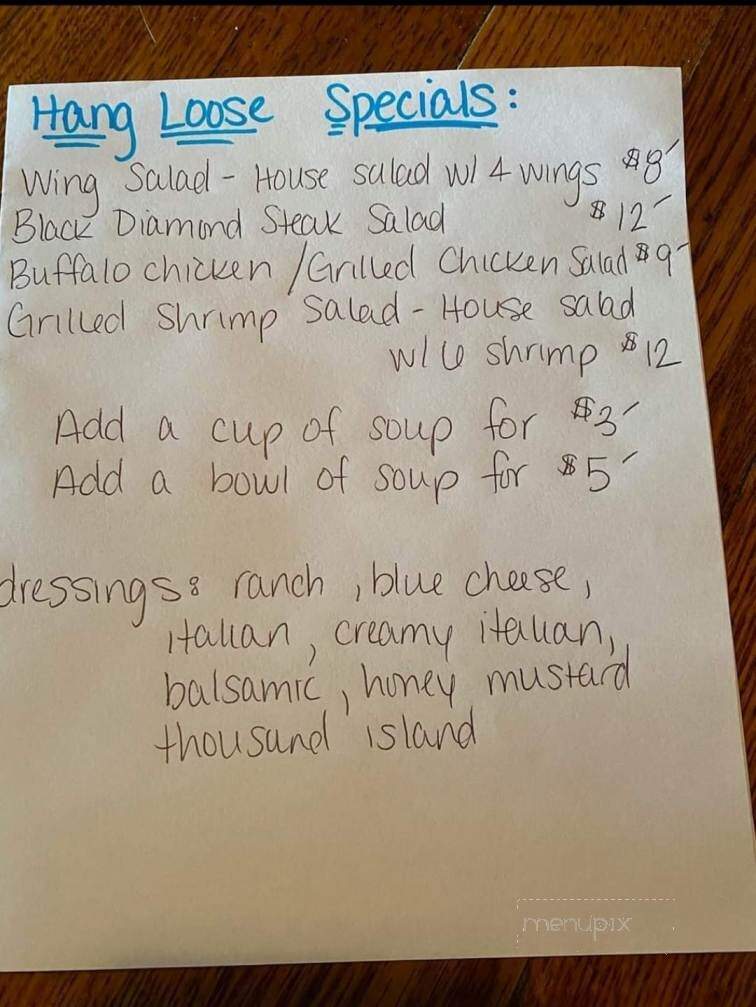 Hang Loose Specials:
Wing Salad - House salad w/ 4 wings $8
Black Diamond Steak Salad $12
Buffalo chicken / Grilled Chicken Salad $9
Grilled Shrimp Salad - House salad
w/ 6 shrimp $12
Add a cup of soup for $3
Add a bowl of soup for $5
dressings: ranch, blue cheese,
italian, creamy italian,
balsamic, honey mustard
thousand island
menupix